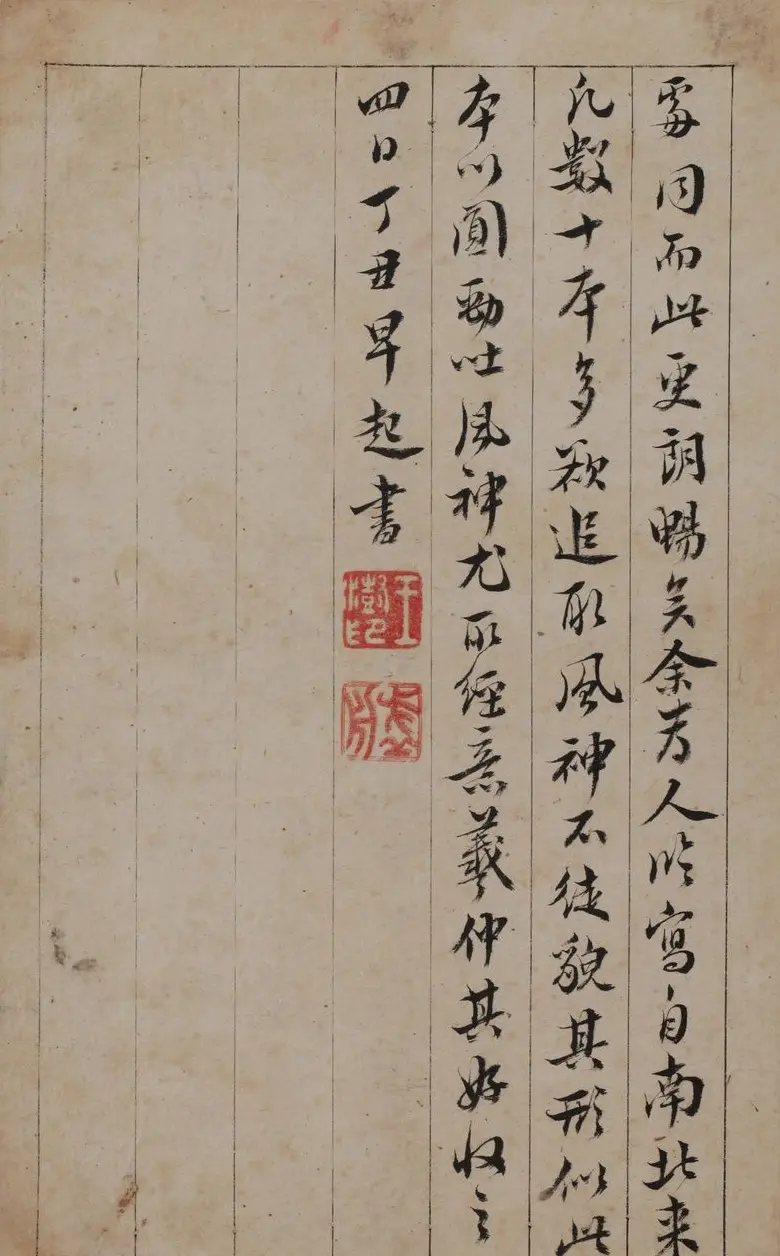 處同而此更朗暢矣余為人臨寫自南北来
凡數十本多欲追取風神不徒貌其形似此
本以圓勁吐風神尤所經意羲仲其好收之
四日丁丑早起書
王澍印
虛舟